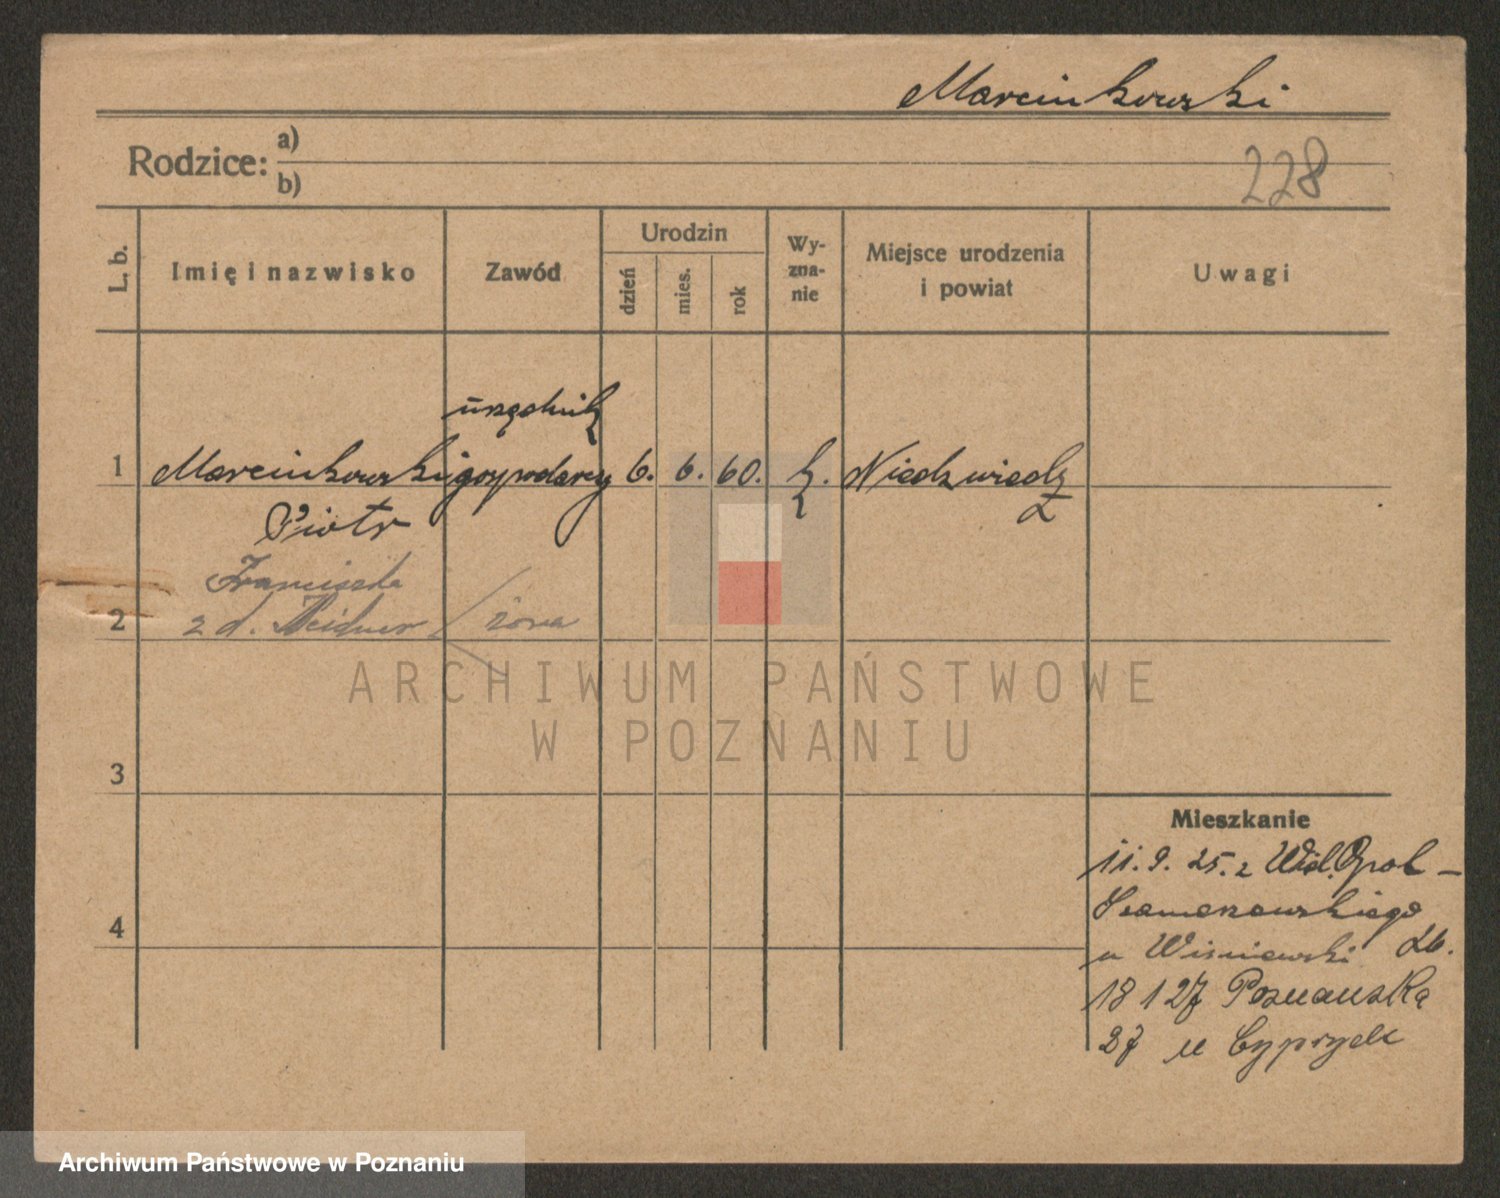 Marcinkowski
Rodzice: a)
b)
228
L. b.
Imię i nazwisko
Zawód
Urodzin
dzień
mies.
rok
Wy-
zna-
nie
Miejsce urodzenia
i powiat
Uwagi
urzędnik
1 Marcinkowski gospodarczy 6. 6. 60. k. Niedzwiedz
Piotr
Franciszka
2 z d. Neidner żona
3
4
Mieszkanie
11. 9. 25. z
Szamarzewskiego
u Wiśniewski 26.
18 1 27 Poznańska
27 u Cyprych
ARCHIWUM PAŃSTWOWE
W POZNANIU
Archiwum Państwowe w Poznaniu